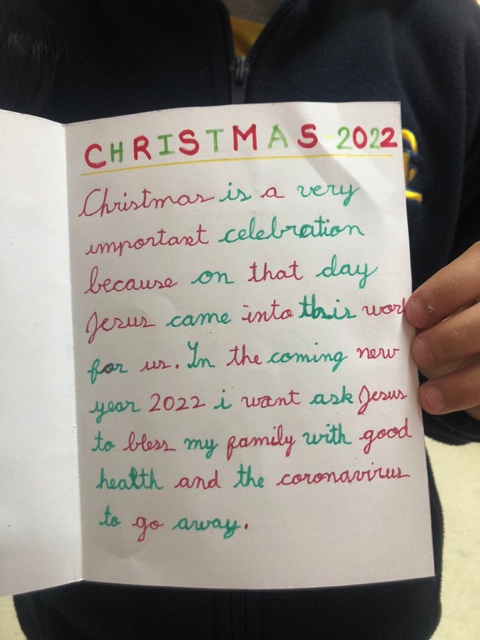 CHRISTMAS 2022
Christmas is a very
important celebration
because on that day
Jesus came into this worl
for us. In the coming new
year 2022 i want ask Jesus
to bless my family with good
health and the coronavirus
to go away.